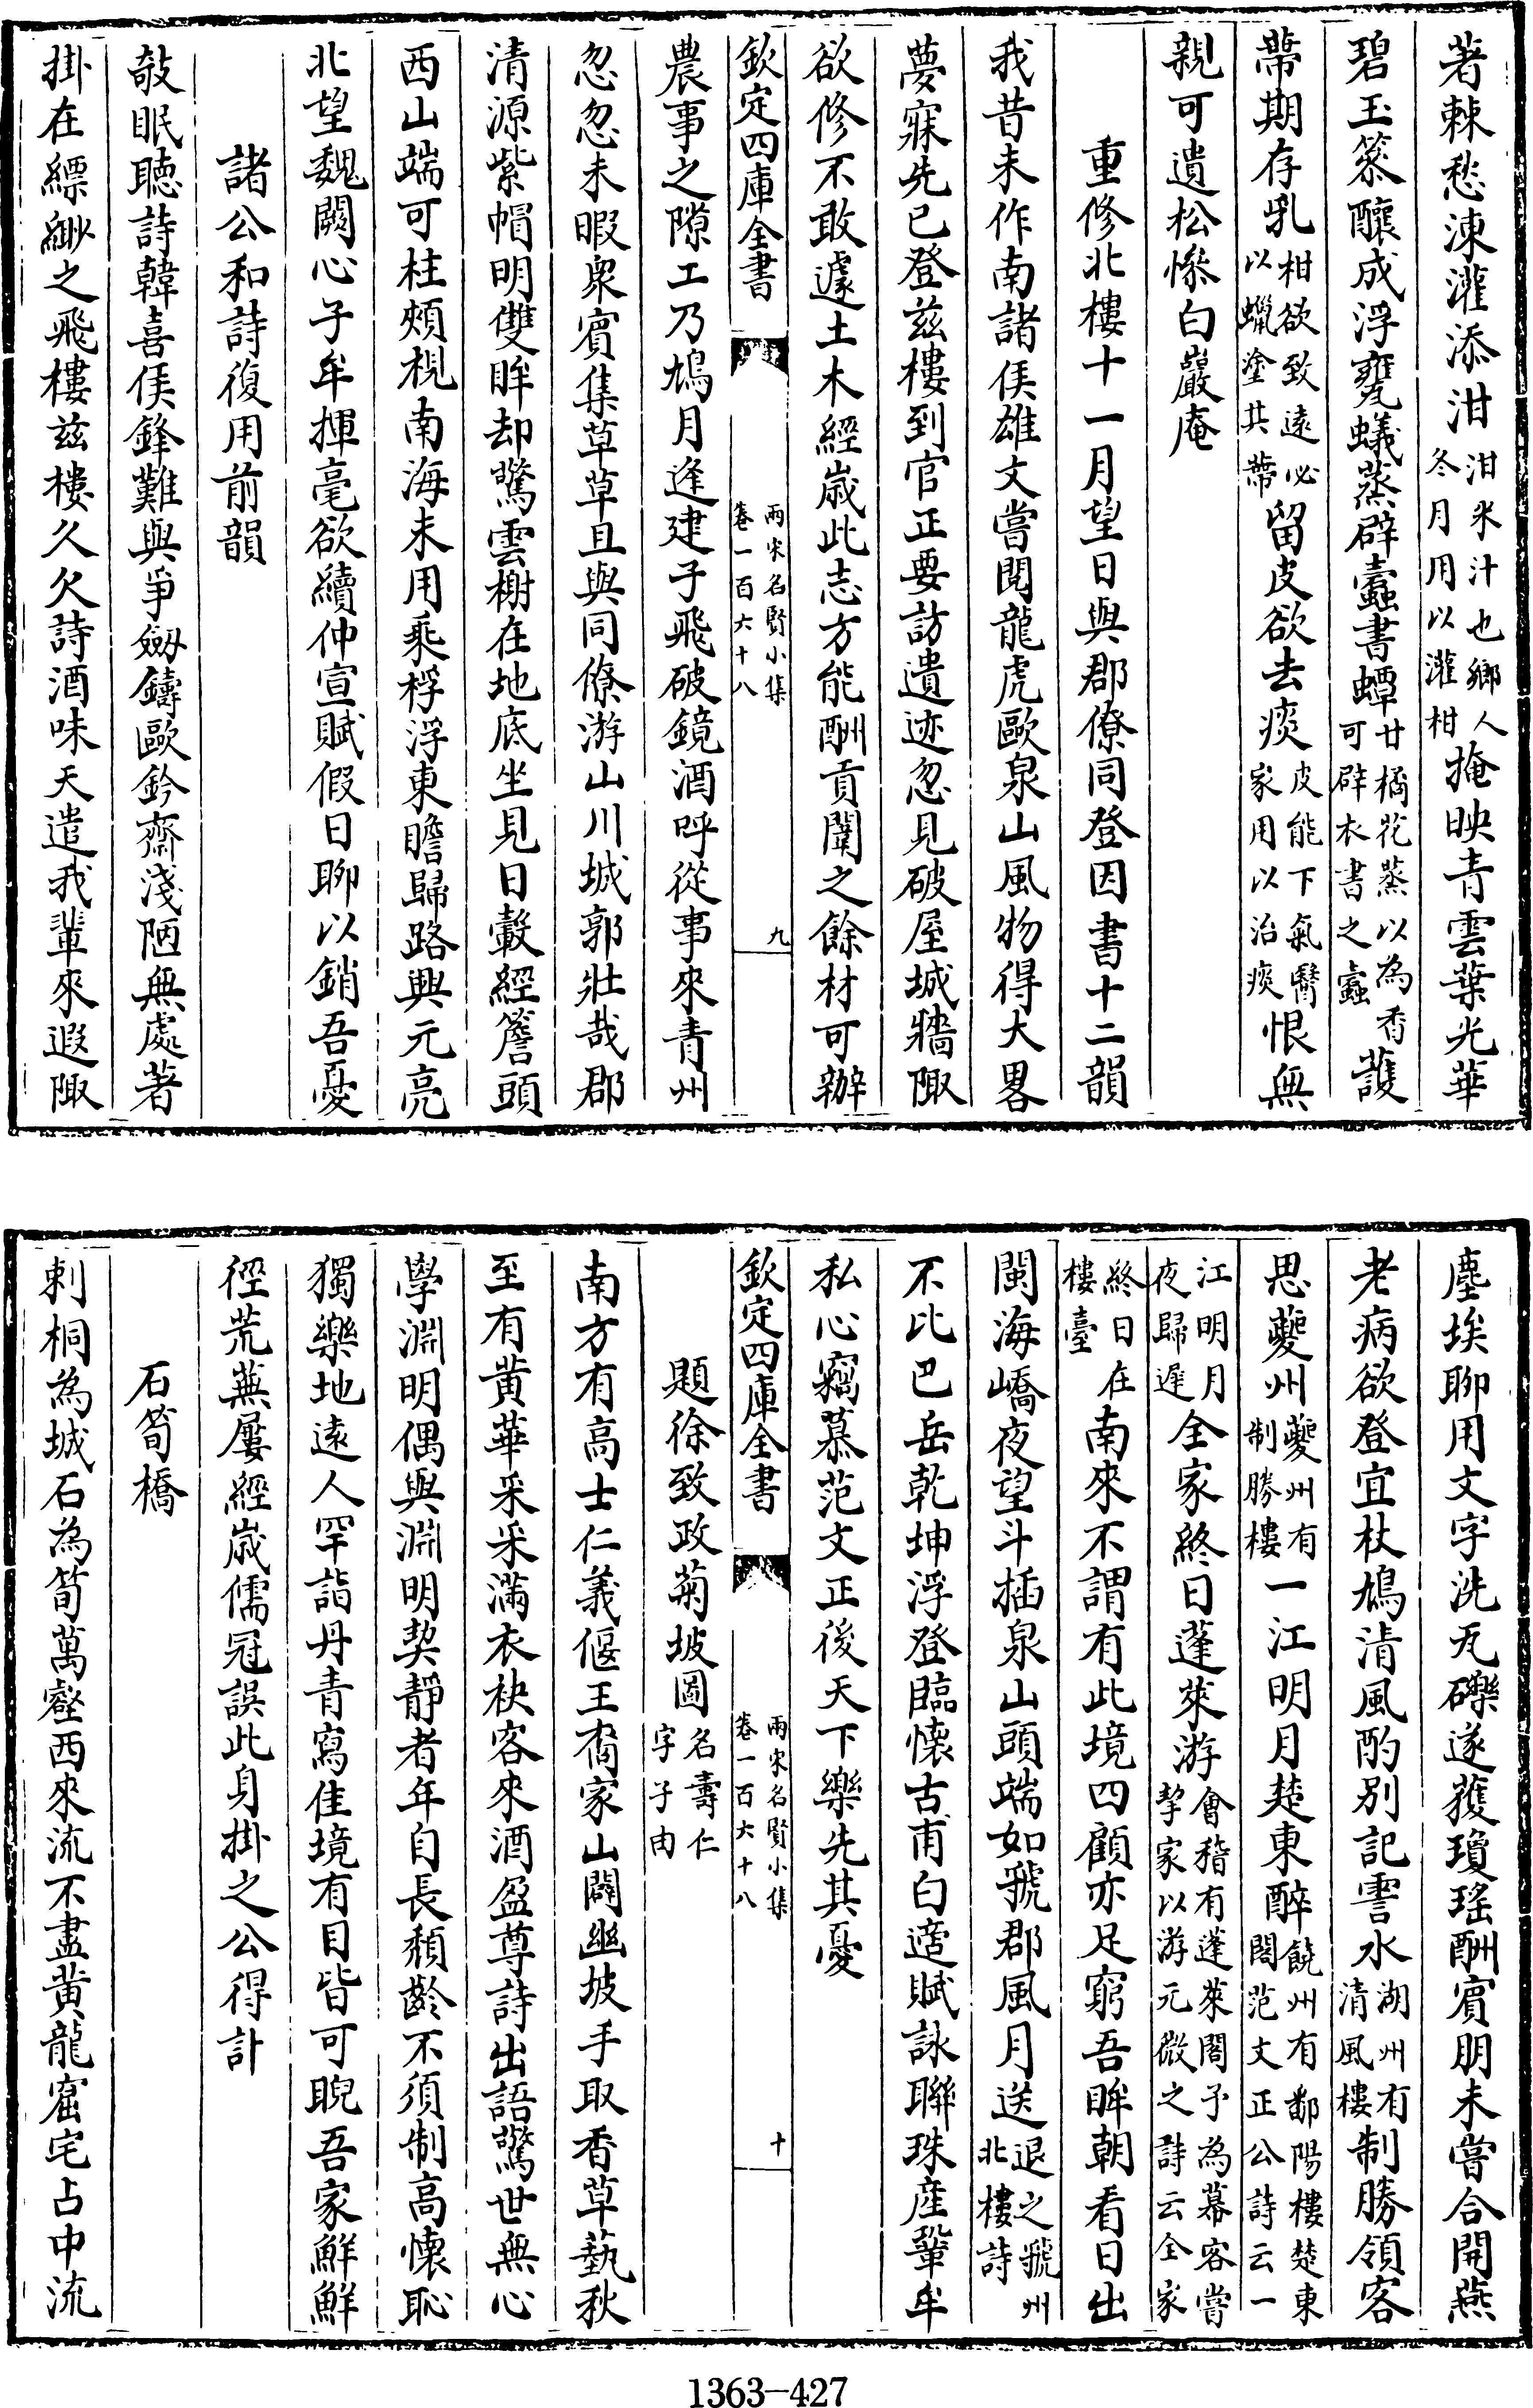 著棘愁凍灌添泔泔米汁也鄉人冬月用以灌柑掩映青雲葉光華
碧玉篸釀成浮甕蟻蒸辟蠹書蟫廿橘花蒸以為香可辟衣書之蠹護
蔕期存乳柑欲致遠必以蠟塗其蔕留皮欲去痰皮能下氣醫家用以治痰恨無
親可遺松慘白巖庵
重修北樓十一月望日與郡僚同登因書十二韻
我昔未作南諸侯雄文嘗閱龍虎歐泉山風物得大畧
夢寐先已登兹樓到官正要訪遺迹忽見破屋城牆陬
欲修不敢遽土木經歲此志方能酬貢闈之餘材可辦
欽定四庫全書
兩宋名賢小集
卷一百六十八
九
農事之隙工乃鳩月逢建子飛破鏡酒呼從事來青州
忽忽未暇衆賓集草草且與同僚游山川城郭壯哉郡
清源紫帽明雙眸却驚雲榭在地底坐見日轂經簷頭
西山端可柱頰梘南海未用乘桴浮東瞻歸路興元亮
北望魏闕心子牟揮毫欲續仲宣賦假日聊以銷吾憂
諸公和詩復用前韻
敧眠聽詩韓喜侯鋒難與爭劒鑄歐鈐齋淺陋無處著
掛在縹緲之飛樓兹樓久欠詩酒味天遣我輩來遐陬
塵埃聊用文字洗瓦礫遂獲瓊瑤酬賓朋未嘗合開燕
老病欲登宜杖鳩清風酌别記霅水湖州有清風樓制勝領客
思夔州夔州有制勝樓一江明月楚東醉饒州有鄱陽樓楚東閣范文正公詩云一
江明月夜歸遲全家終日蓬萊游會稽有蓬萊閣予為幕客嘗挈家以游元微之詩云全家
終日在樓臺南來不謂有此境四顧亦足窮吾眸朝看日出
閩海嶠夜望斗插泉山頭端如虢郡風月送退之虢州北樓詩
不比巴岳乾坤浮登臨懷古甫白適賦詠聯珠産鞏牟
私心竊慕范文正後天下樂先其憂
欽定四庫全書
兩宋名賢小集
卷一百六十八
十
題徐致政菊坡圖名壽仁字子由
南方有高士仁義偃王裔家山闢幽坡手取香草蓺秋
至有黄華采采滿衣袂客來酒盈尊詩出語驚世無心
學淵明偶與淵明契靜者年自長頽齡不須制高懷恥
獨樂地遠人罕詣丹青寫佳境有目皆可睨吾家鮮鮮
徑荒蕪屢經歲儒冠誤此身掛之公得計
石筍橋
刺桐為城石為筍萬壑西來流不盡黄龍窟宅占中流
1363-427